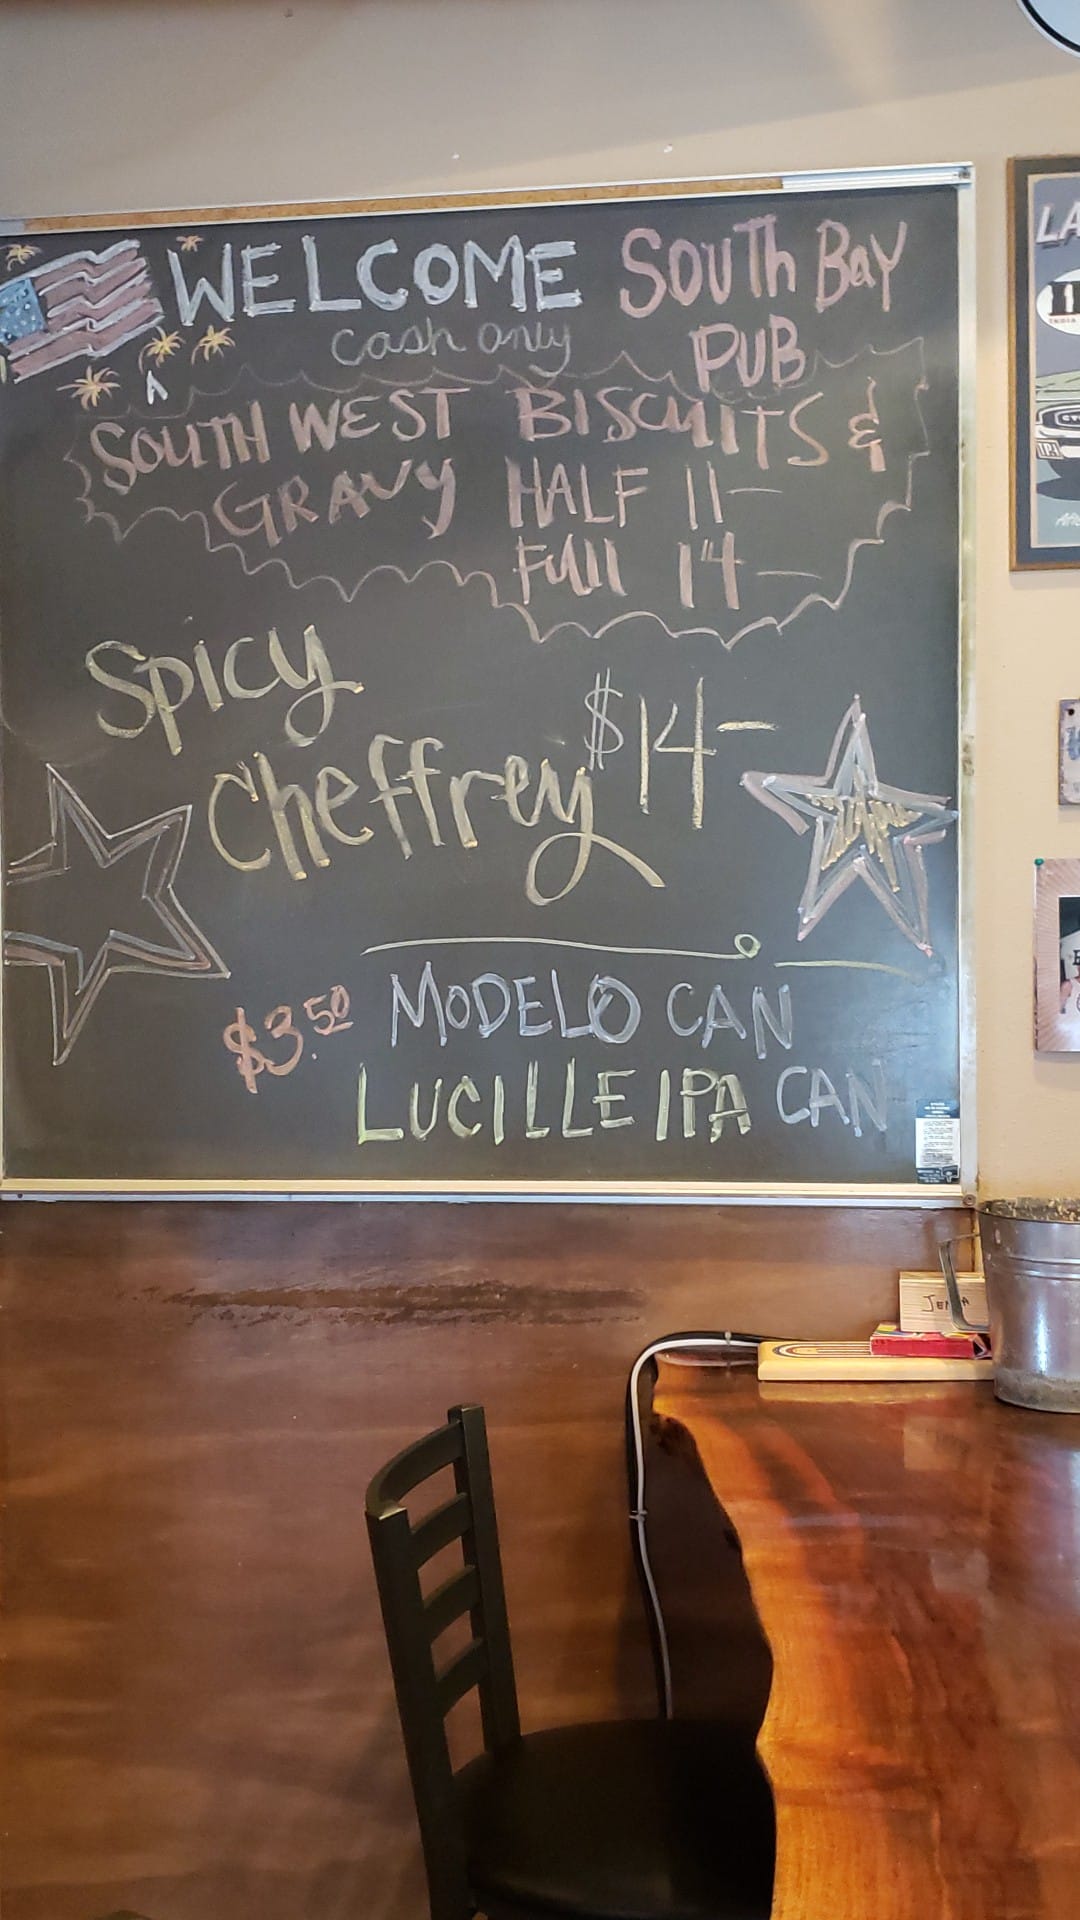 WELCOME SOUTH BAY
cash only PUB
SOUTHWEST BISCUITS &
GRAVY HALF 11-
FUll 14-
Spicy
Cheffrey $14-
$3.50 MODELO CAN
LUCILLE IPA CAN
LA
INDIA
IPA